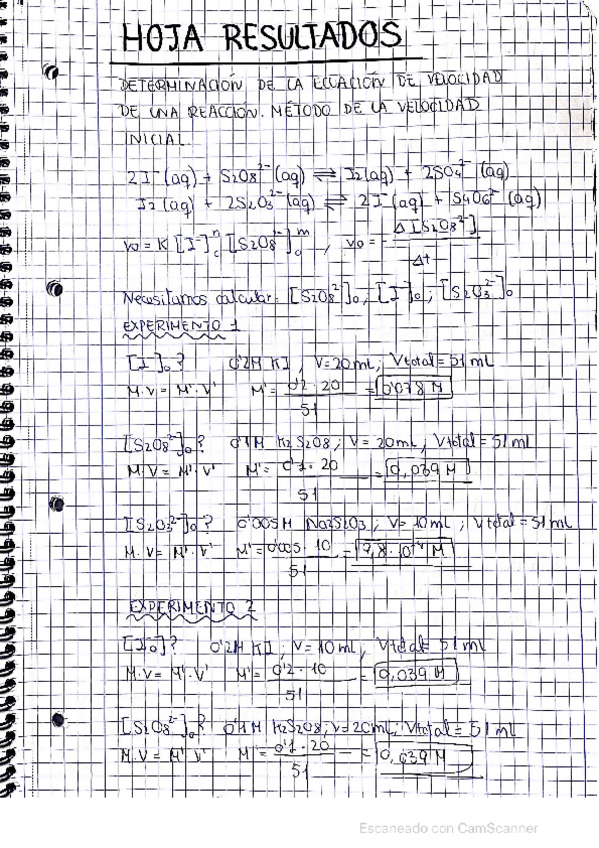 HOJA RESULTADOS
DETERMINACIÓN DE LA ECUACIÓN DE VELOCIDAD
DE UNA REACCIÓN. MÉTODO DE LA VELOCIDAD
INICIAL.
2I⁻(aq) + S2O8²⁻(aq) ⇌ I2(aq) + 2SO4²⁻(aq)
I2(aq) + 2S2O3²⁻(aq) ⇌ 2I⁻(aq) + S4O6²⁻(aq)
v0 = K [I⁻]₀ⁿ [S2O8²⁻]₀ᵐ , v0 = - Δ[S2O8²⁻] / Δt
Necesitamos calcular: [S2O8²⁻]₀ ; [I⁻]₀ ; [S2O3²⁻]₀
EXPERIMENTO 1
[I⁻]₀? 0'2M KI , V=20mL ; Vtotal = 51 mL
M·V = M'·V' M' = 0'2 · 20 / 51 = 0'078 M
[S2O8²⁻]₀? 0'1M K2S2O8 ; V = 20mL , Vtotal = 51 ml
M·V = M'·V' M' = 0'1 · 20 / 51 = 0,039 M
[S2O3²⁻]₀? 0'005M Na2S2O3 ; V= 10mL ; Vtotal = 51mL
M·V = M'·V' M' = 0'005 · 10 / 51 = 9,8 · 10⁻⁴ M
EXPERIMENTO 2
[I0]? 0'2M KI ; V= 10mL , Vtotal= 51mL
M·V = M'·V' M' = 0'2 · 10 / 51 = 0,039 M
[S2O8²⁻]₀? 0'1M K2S2O8 ; V= 20mL ; Vtotal = 51 mL
M·V = M'·V' M' = 0'1 · 20 / 51 = 0,039 M
Escaneado con CamScanner